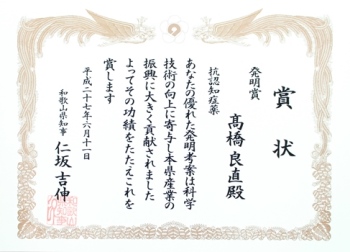 賞状
発明賞
髙橋良直殿
抗認知症薬
あなたの優れた発明考案は科学
技術の向上に寄与し本県産業の
振興に大きく貢献されました
よってその功績をたたえこれを
賞します
平成二十七年六月十一日
和歌山県知事 仁坂吉伸